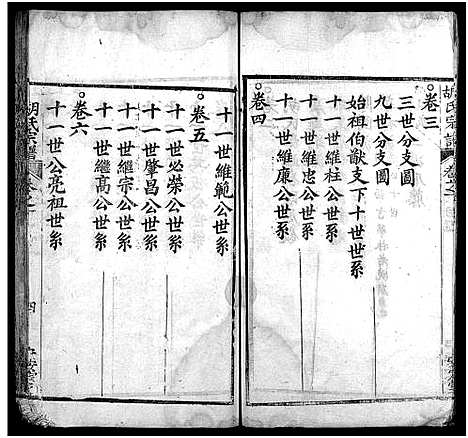 胡氏宗譜
卷三
三世分支圖
九世分支圖
始祖伯猷支下十世世系
十一世維柱公世系
十一世維忠公世系
十一世維康公世系
卷四
十一世維範公世系
卷五
十一世必榮公世系
十一世肇昌公世系
十一世繼宗公世系
十一世繼高公世系
卷六
十一世公亮祖世系
胡氏宗譜
卷之一
四